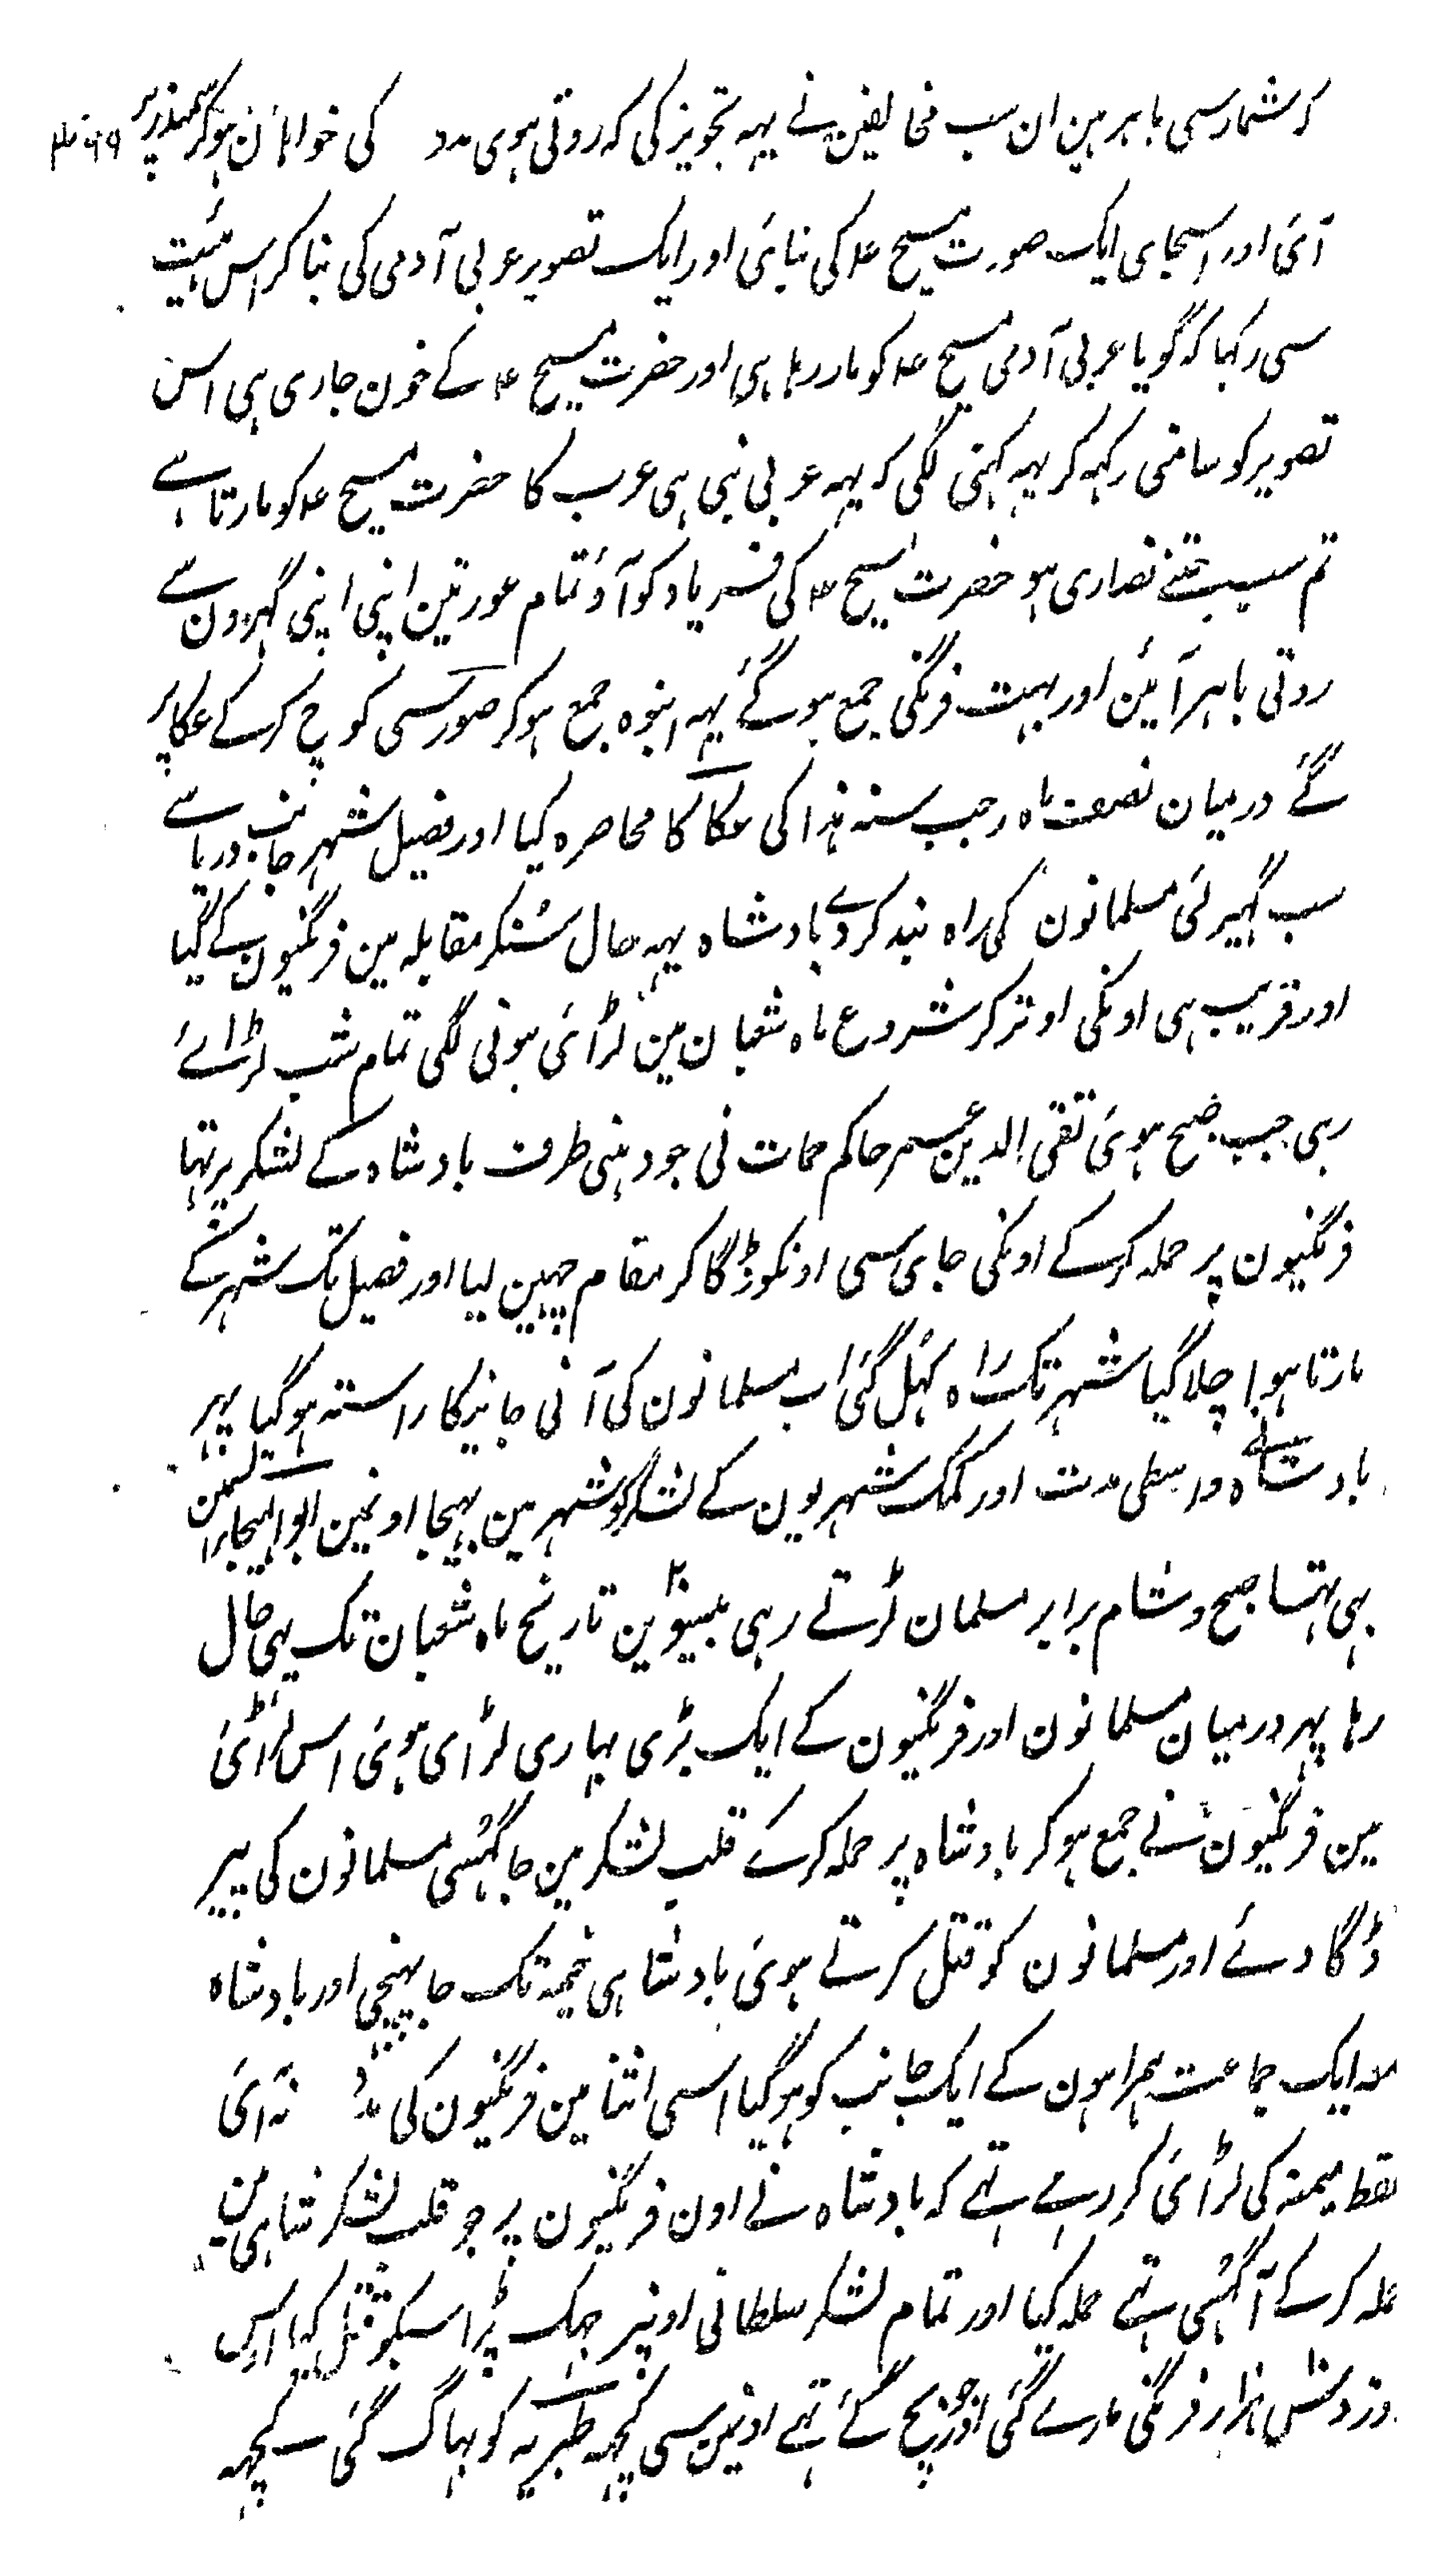 کہ شمارسی باہر ہین ان سب مخالفین نے یہہ تجویز کی کہ روتی ہوی مدد کی خواہان ہوکر سمندر پر
آئی اور اسجای ایک صورت مسیح ؑ کی بنائی اور ایک تصویر عربی آدمی کی بناکر اس ہئیت
سی رکہا کہ گویا عربی آدمی مسیح ؑ کو مار رہا ہی اور حضرت مسیح ؑ کے خون جاری ہی اس
تصویر کو سامنی رکہہ کر یہہ کہنی لگی کہ یہہ عربی نبی ہی عرب کا حضرت مسیح ؑ کو مارتا ہے
تم سب جتنے نصاری ہو حضرت مسیح ؑ کی فریاد کو آؤ تمام عورتین اپنی اپنی گہرون سے
روتی باہر آئین اور بہت فرنگی جمع ہوگئے یہہ انبوہ جمع ہوکر صور سی کوچ کرکے عکا پر
گئے درمیان نصف ماہ رجب سنہ ہذا کی عکا کا محاصرہ کیا اور فصیل شہر جانب دریا سے
سب گہیر لئی مسلمانون کی راہ بند کردے بادشاہ یہہ حال سُنکر مقابلہ مین فرنگیون کے گیا
اور قریب ہی اونکی اوترکر شروع ماہ شعبان مین لڑائی ہونی لگی تمام شب لڑائے
رہی جب صبح ہوئی تقی الدین عمر حاکم حمات نی جو دہنی طرف بادشاہ کے لشکر پر تہا
فرنگیون پر حملہ کرکے اونکی جای سی اونکو ڈگا کر مقام چہین لیا اور فصیل تک شہر کے
مارتا ہوا چلا گیا شہر تک راہ کہُل گئی اب مسلمانون کی آنی جانیکا راستہ ہوگیا پہر
بادشاہ نے واسطی مدت اور کمک شہریون کے لشکر کو شہر مین بہیجا اونمین ابو الہیجا السمین
بہی تہا صبح و شام برابر مسلمان لڑتے رہی بیسوین ۲۰ تاریخ ماہ شعبان تک یہی حال
رہا پہر درمیان مسلمانون اور فرنگیون کے ایک بڑی بہاری لڑای ہوئی اس لڑائی
مین فرنگیون نے جمع ہوکر بادشاہ پر حملہ کرکے قلب لشکر مین جا گہُسی مسلمانون کی پیر
ڈگا دئے اور مسلمانون کو قتل کرتے ہوئی بادشاہی خیمہ تک جا پہنچی اور بادشاہ
معہ ایک جماعت ہمراہون کے ایک جانب کو ہوگیا اسی اثنا مین فرنگیون کی مدد نہ آئی
فقط میمنہ کی لڑائی کر رہے تہے کہ بادشاہ نے اون فرنگیون پر جو قلب لشکر شاہی مین
حملہ کرکے آ گہُسی تہے حملہ کیا اور تمام لشکر سلطانی اونپر جہک پڑا سبکو قتل کیا اس
روز دس ہزار فرنگی مارے گئی اور جو بچ گئے تہے اونمین سی کچہہ طبریہ کو بہاگ گئی کچہہ